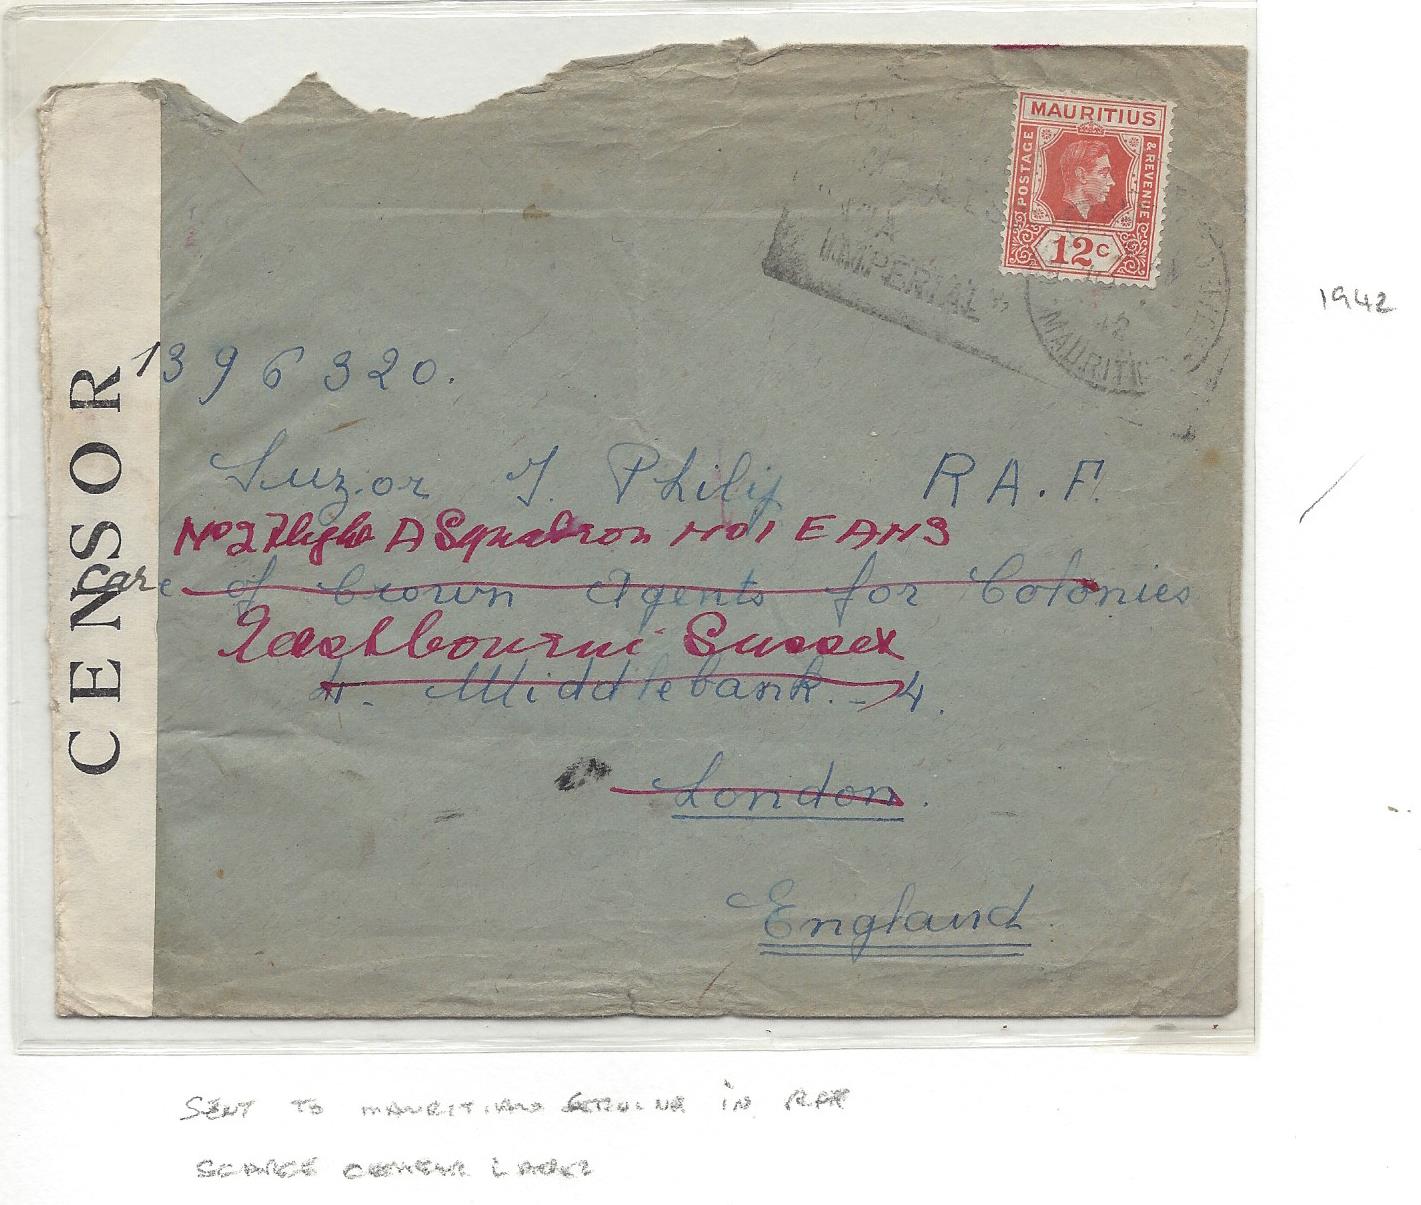 MAURITIUS
POSTAGE
& REVENUE
12c
"VIA
IMPERIAL"
42
MAURITIUS
1942
CENSOR
1396320.
Suzor J. Philip R.A.F.
No 2 Flight A Squadron No 1 EANS
Care of Crown Agents for Colonies
Eastbourne Sussex
4. Middlebank. - 4.
London.
England
SENT TO MAURITIANS SERVING IN RAF
SCARCE CENSOR LABEL